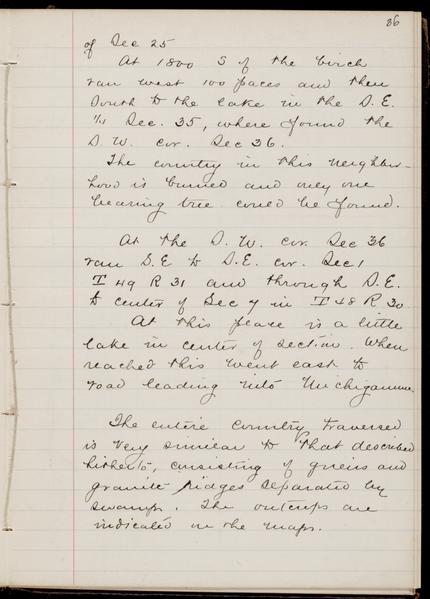 36
of Sec 25
At 1800 S of the birch
ran west 100 paces and then
South to the lake in the S.E.
1/4 Sec. 35, where found the
S. W. cor. Sec 36.
The country in this neighbor-
hood is burned and only one
bearing tree could be found.
At the S. W. cor. Sec 36
ran S.E to S.E. cor. Sec 1
T 49 R 31 and through S.E.
to center of Sec 7 in T 48 R 30.
At this place is a little
lake in center of section. When
reached this went east to
road leading into Michigamme.
The entire country traversed
is very similar to that described
hitherto, consisting of gneiss and
granite ridges separated by
swamps. The outcrops are
indicated on the maps.